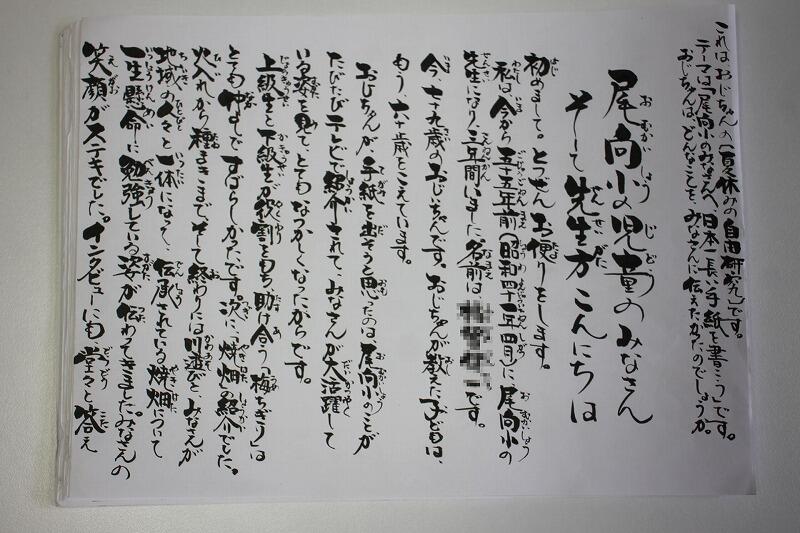 これはおじちゃんの「夏休みの自由研究」です。
テーマは「尾向小のみなさんへ、日本一長い手紙を書こう」です。
おじちゃんは、どんなことを、みなさんに伝えたかったのでしょうか。
尾向小の児童のみなさん
そして先生方こんにちは
初めまして。とつぜんお便りをします。
私は今から五十五年前(昭和四十一年四月)に尾向小の
先生になり三年間いました。名前は、です。
今、七十九歳のおじいちゃんです。おじちゃんが教えた子どもは、
もう、六十歳をこえています。
おじちゃんが手紙を出そうと思ったのは尾向小のことが
たびたびテレビで紹介されて、みなさんが大活躍して
いる姿を見て、とてもなつかしくなったからです。
上級生と下級生が役割をもち助け合う「梅ちぎり」は
とても仲よしですばらしかったです。次に、「焼畑」の紹介でした。
火入れから種まきまでそして終わりには川遊びと、みなさんが
地域の人々と一体になって、伝承されている焼畑について
一生懸命に勉強している姿が伝わってきました。みなさんの
笑顔がステキでした。インタビューにも、堂々と答え